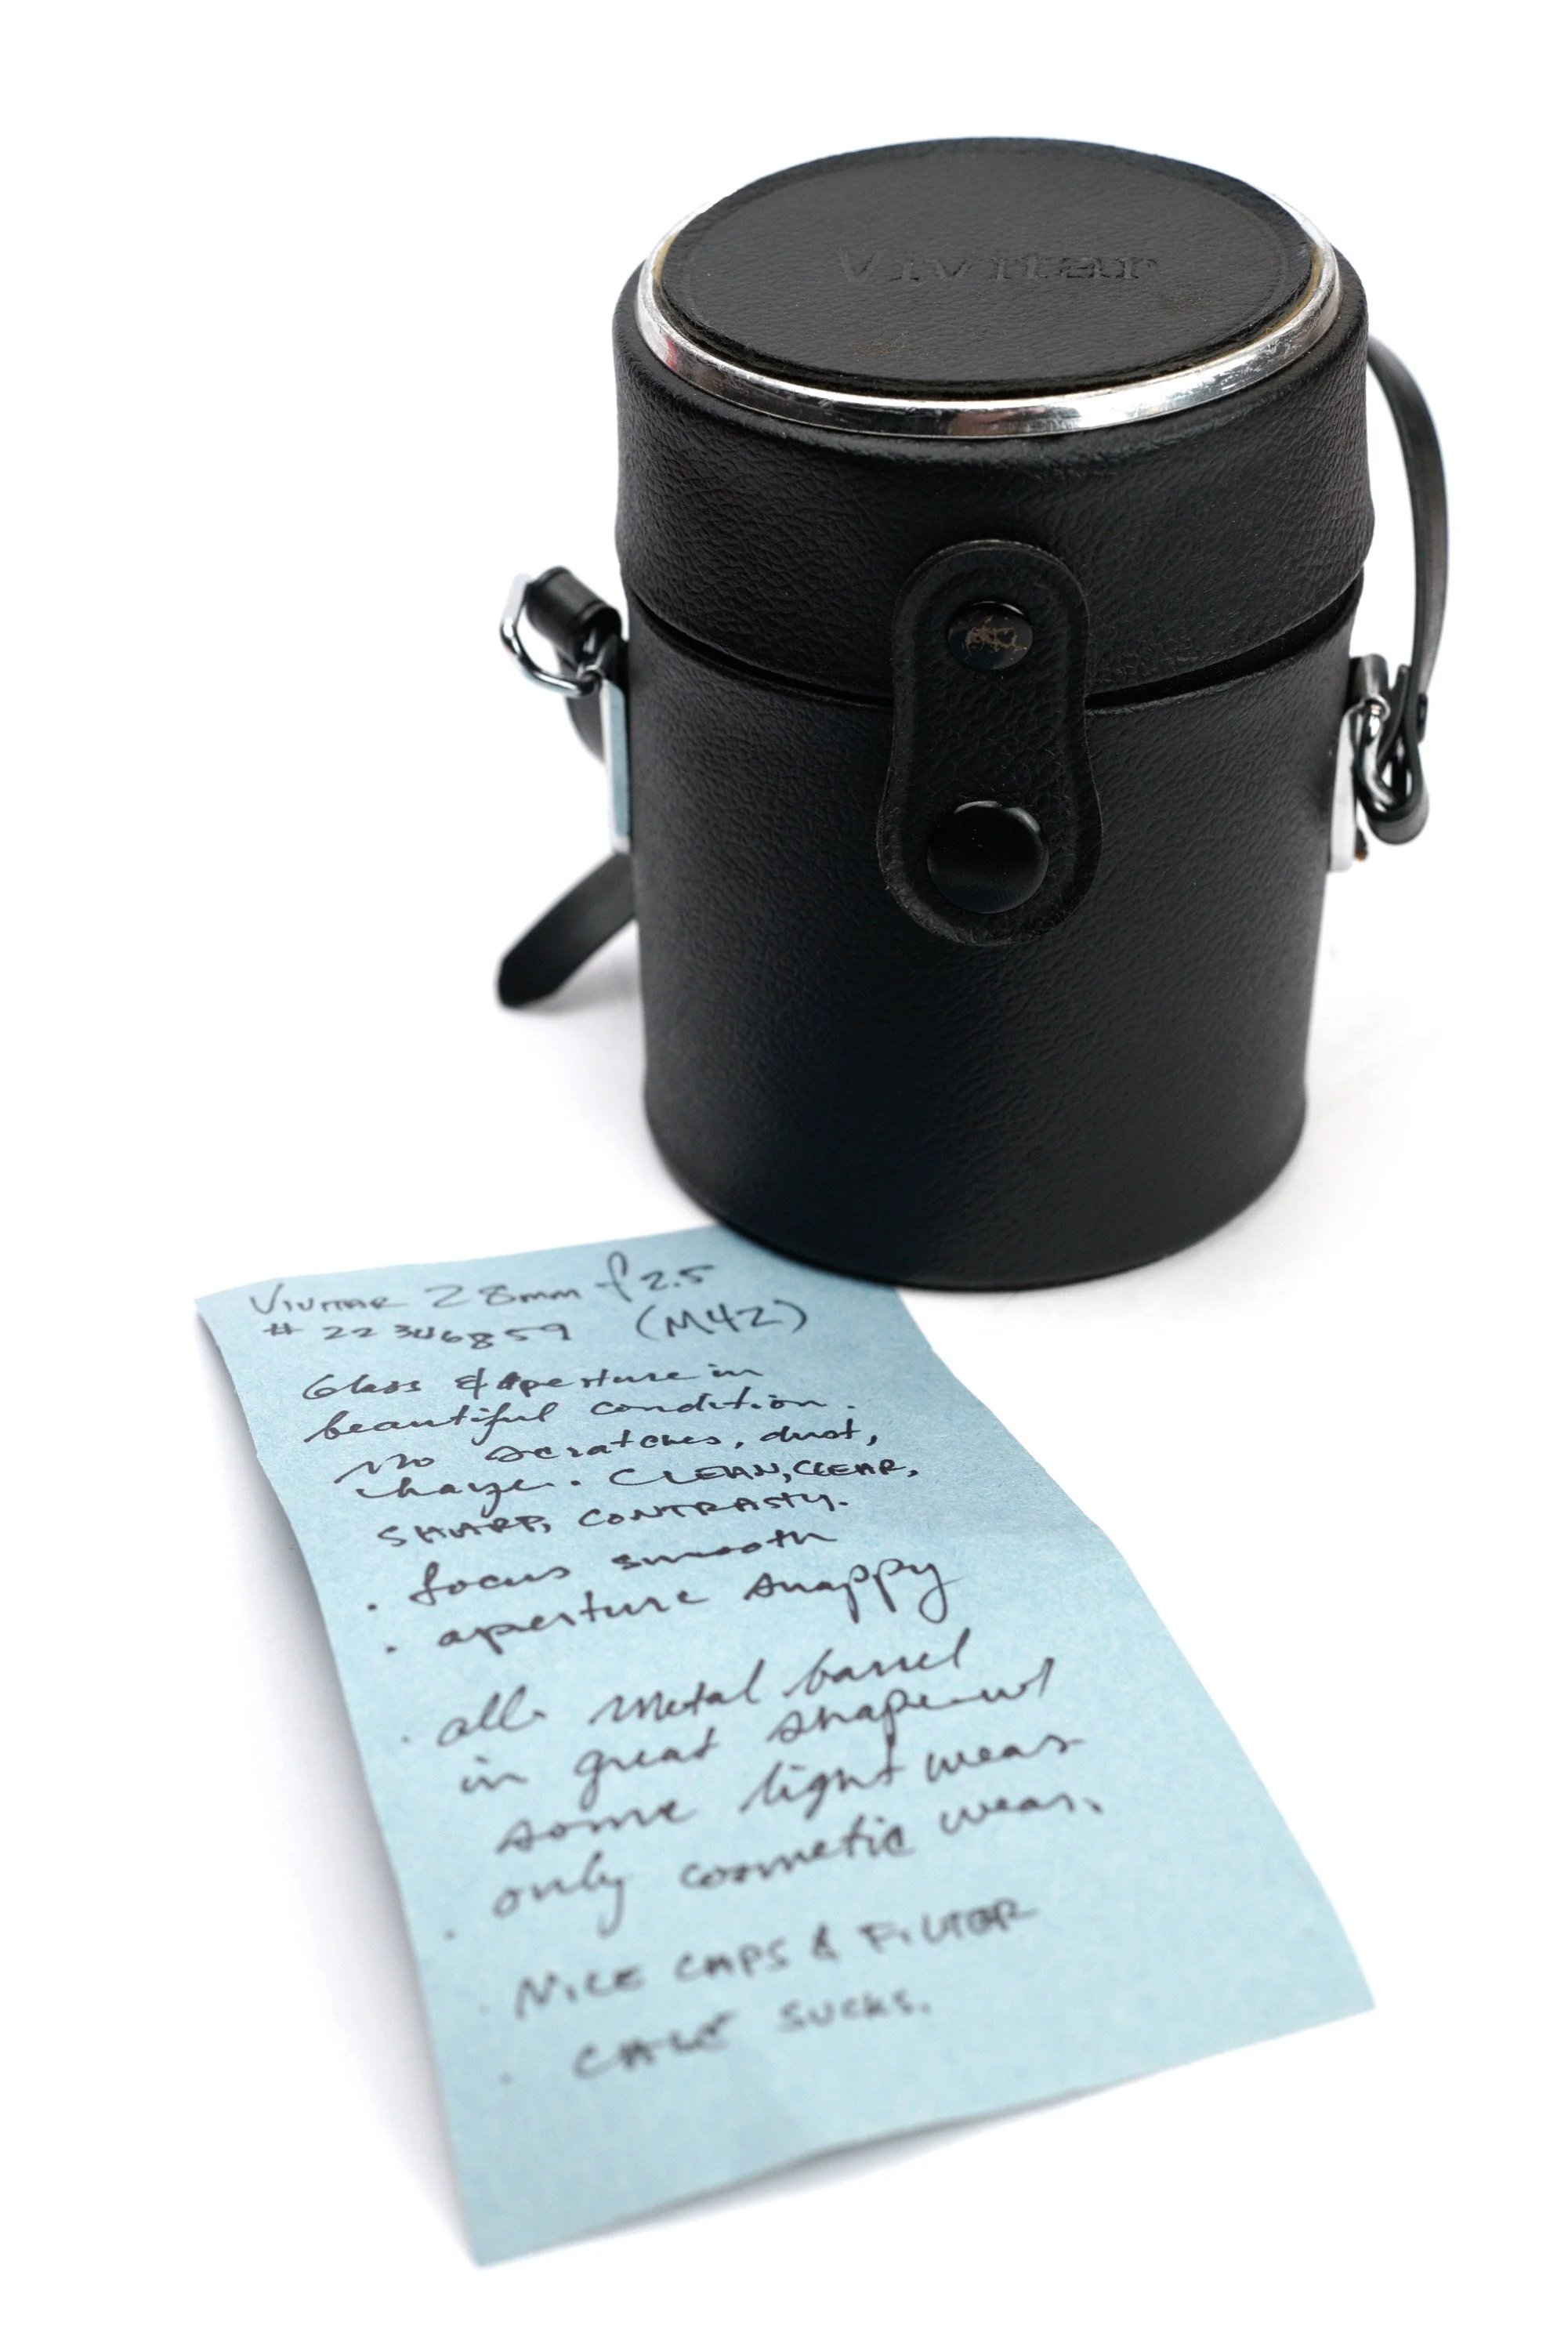 Vivitar
VIVITAR 28mm f2.5
# 22346859 (M42)
Glass & Aperture in
beautiful condition.
no scratches, dust,
haze. CLEAN, CLEAR,
SHARP, CONTRASTY.
• focus smooth
• aperture snappy
• all metal barrel
in great shape w/
some light wear
• only cosmetic wear.
• NICE CAPS & FILTER
• CASE SUCKS.